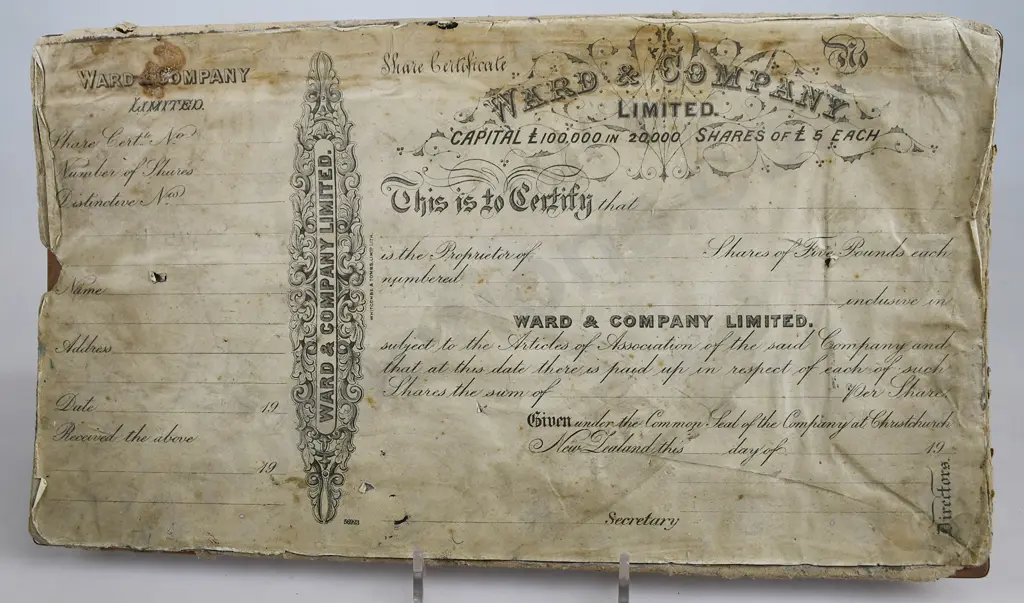 WARD & COMPANY
LIMITED.
Share Cert^te. No
Number of Shares
Distinctive Nos
Name
Address
Date 19
Received the above
19
WARD & COMPANY LIMITED.
WHITCOMBE & TOMBS LIMITED LITH.
56923
Share Certificate
No
WARD & COMPANY
LIMITED.
CAPITAL £100,000 IN 20,000 SHARES OF £5 EACH
This is to Certify that
is the Proprietor of Shares of Five Pounds each
numbered
inclusive in
WARD & COMPANY LIMITED.
subject to the Articles of Association of the said Company and
that at this date there is paid up in respect of each of such
Shares the sum of per Share.
Given under the Common Seal of the Company at Christchurch
New Zealand this day of 19
Directors.
Secretary